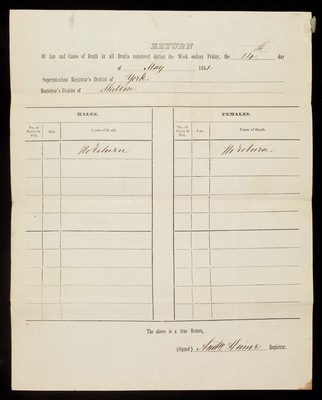 RETURN
Of Age and Cause of Death in all Deaths registered during the Week ending Friday, the 14th day
of May 1841.
Superintendent Registrar's District of York.
Registrar's District of Skelton.
MALES. FEMALES.
No. of Entry in Reg. Age. Cause of Death. No. of Entry in Reg. Age. Cause of Death.
No return No return.
The above is a true Return,
(Signed) Registrar.